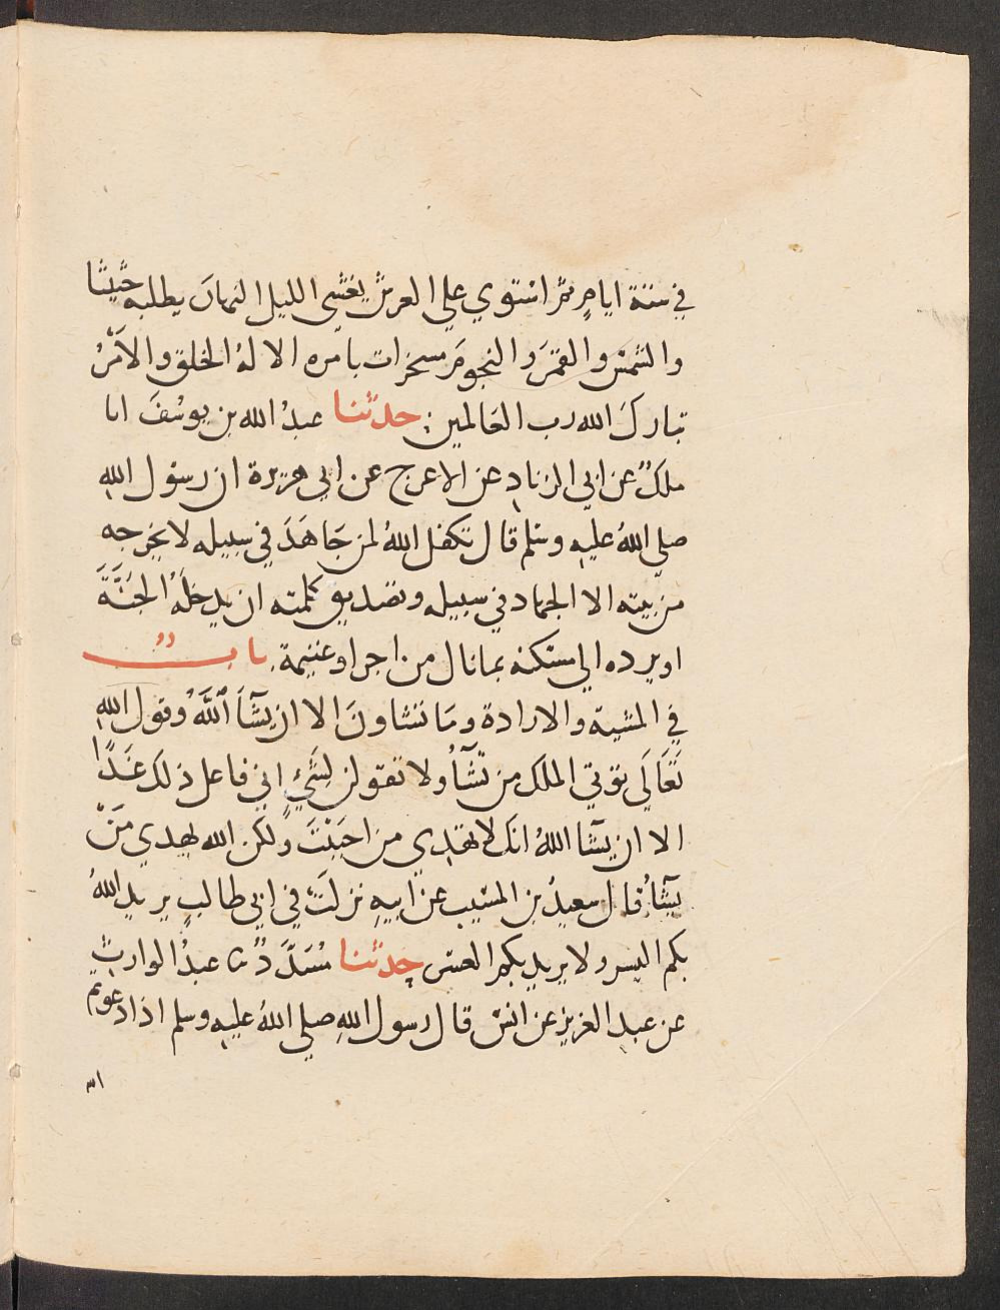 في ستة ايامٍ ثمَّ استوي علي العرش يغشي الليل النهارَ يطلبه حثيثا
والشمسَ والقمرَ والنجومَ مسخرات بامره الا لهُ الخلق والاَمْرُ
تبارك الله رب العَالمين: حدثنا عبدُ الله بن يوسُفَ انا
ملكٌ عن ابي الزنادِ عن الاعرج عن ابي هريرة ان رسول اللهِ
صلي اللهُ عليهِ وسلم قال تكفل اللهُ لمن جَاهَدَ في سبيله لا يخرجه
من بيته الا الجهاد في سبيله وتصديق كلمته ان يدخلَهُ الجَنَّةَ
او يرده الي مسكنه بما نال من اجر او غنيمة. بابٌ
في المشيّه والارادة ومَا تشاونَ الا ان يشآَ ٱللَّهُ وقول اللهِ
تَعَالَي توتي الملك من تشآُ ولا تقولن لِشَيْءٍ اني فاعل ذلك غَدًا
الا ان يشآ اللهُ انك لا تهدي من احببْتَ ولكن الله يهدي مَنْ
يشآُ قال سعيدُ بن المسيب عن ابيهِ نزلَت في ابي طالبٍ يريد اللهُ
بكم اليسر ولا يريد بكم العسر حدثنا مُسَدَّدٌ ثنا عبدُ الوارث
عن عبد العزيز عن انس قال رسول اللهِ صلي اللهُ عليهِ وسلم اذا دعوتم
٣١